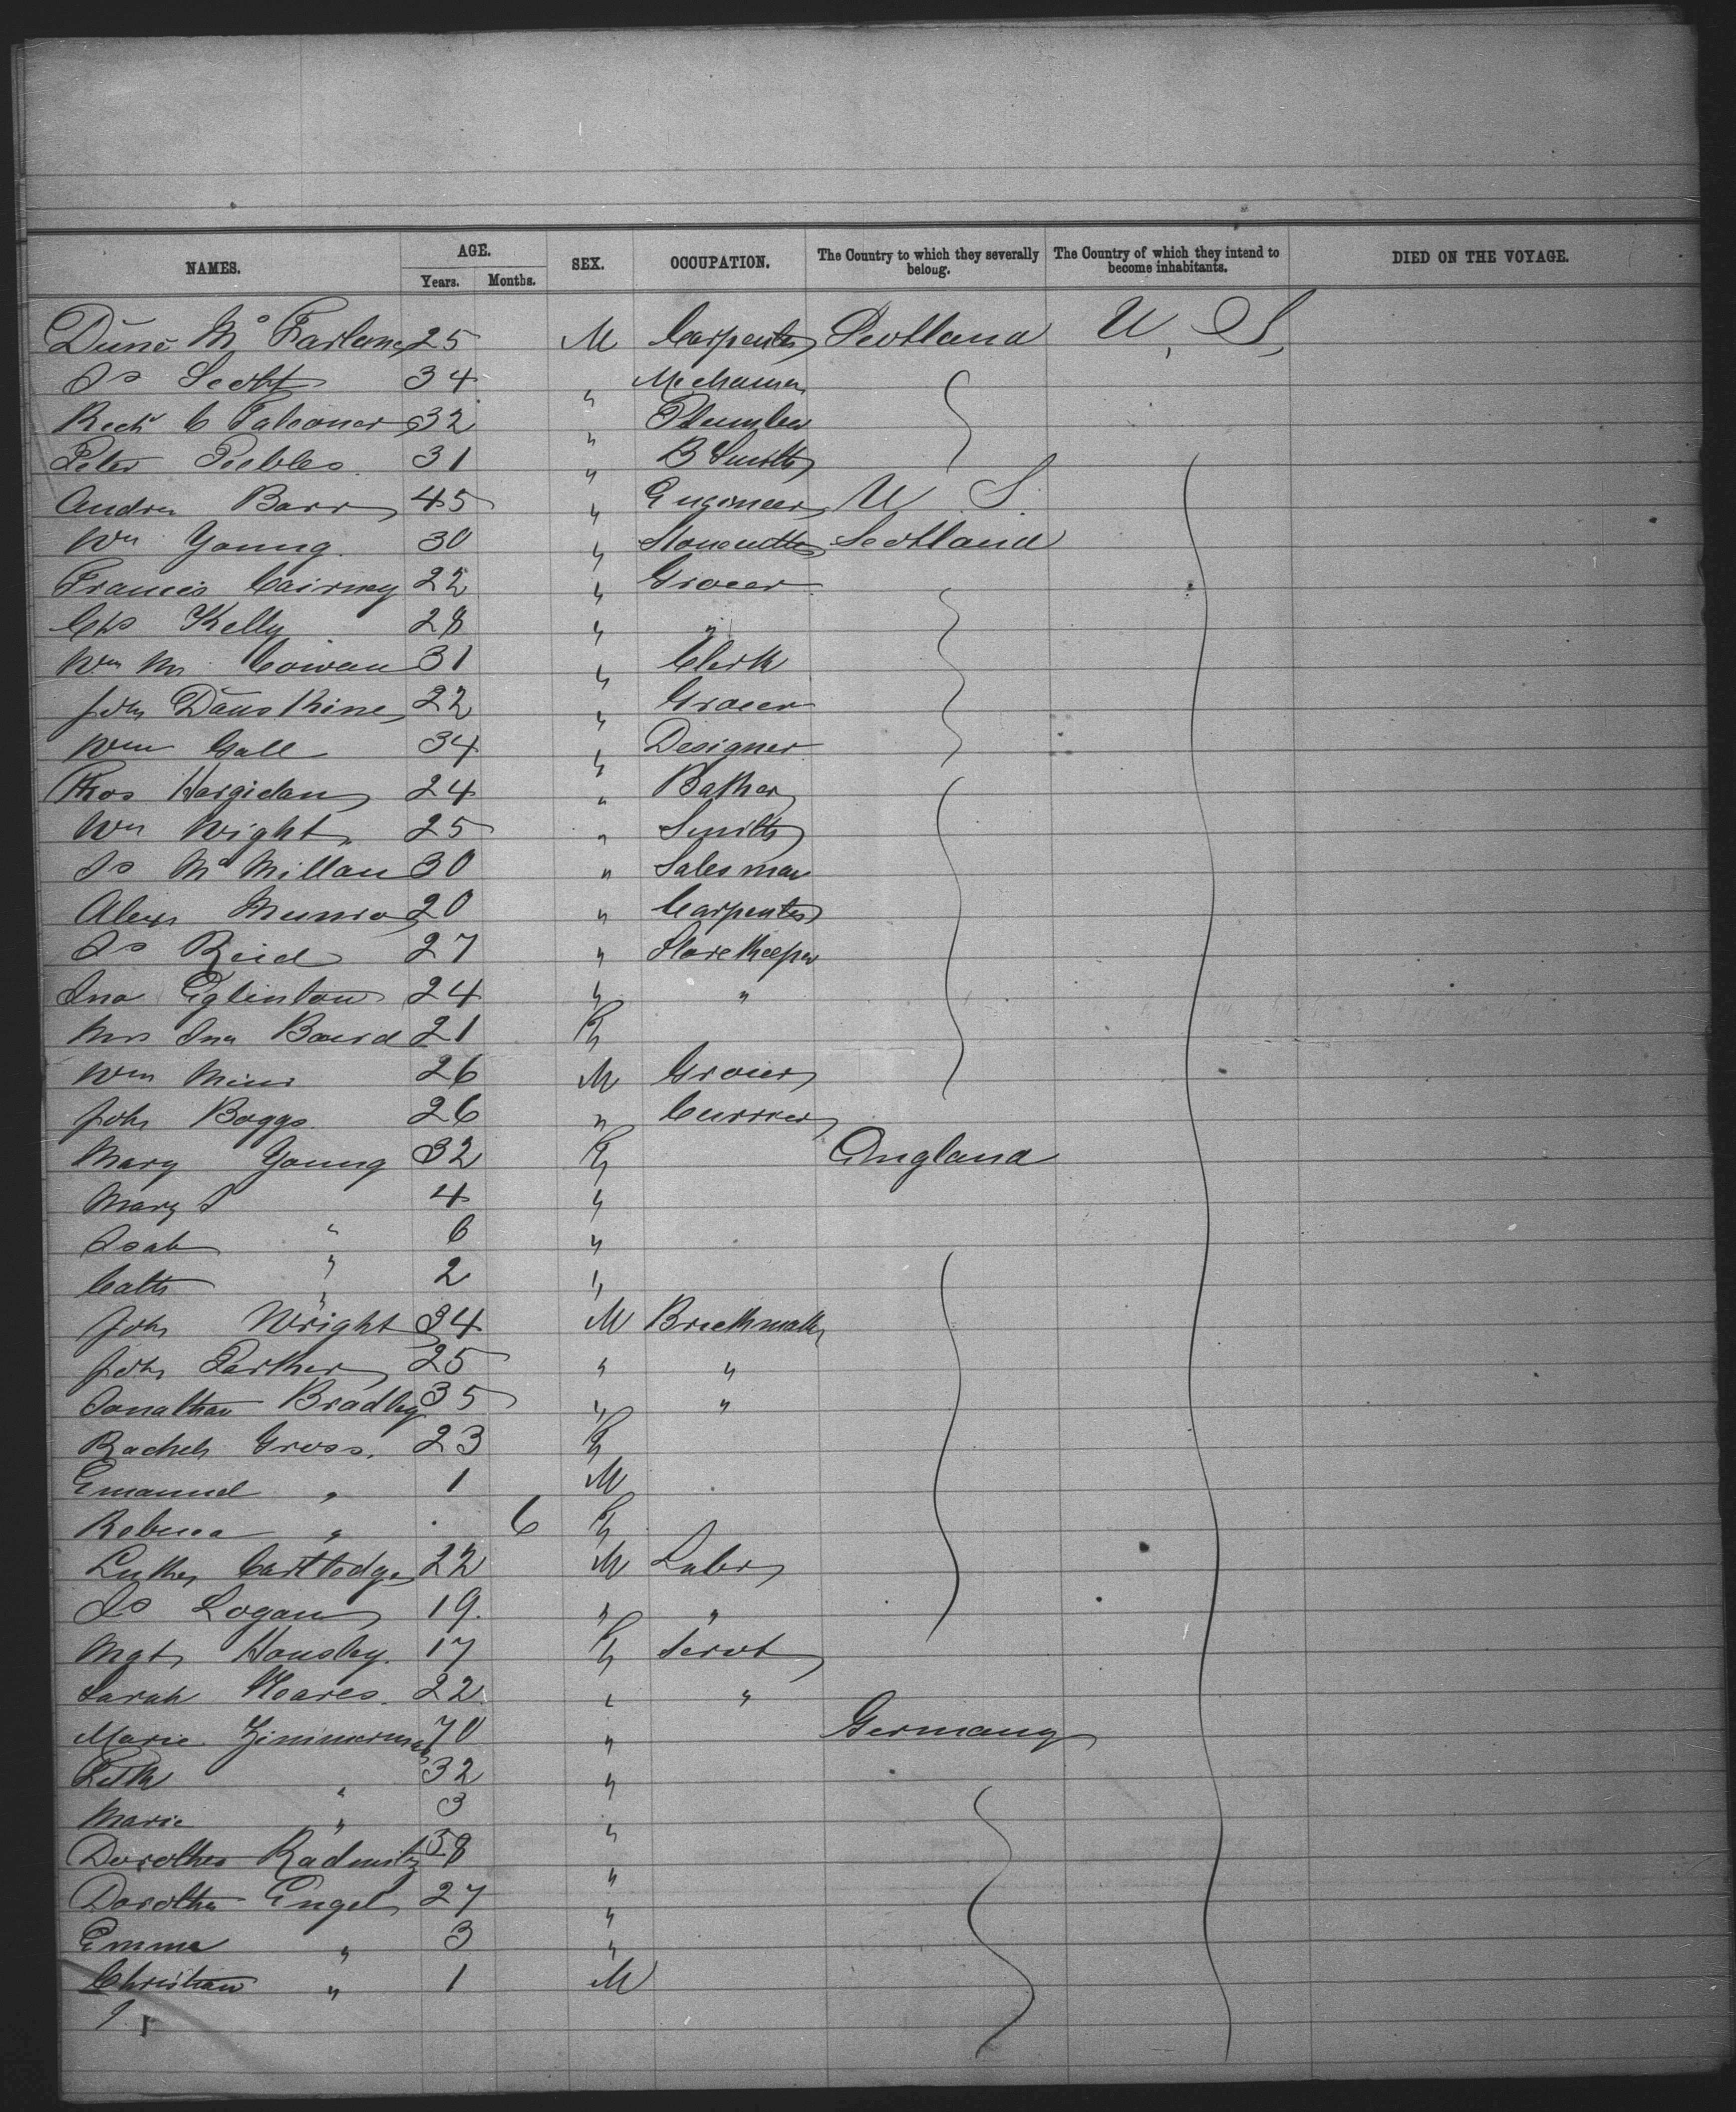 NAMES. AGE. Years. Months. SEX. OCCUPATION. The Country to which they severally belong. The Country of which they intend to become inhabitants. DIED ON THE VOYAGE.
Dunc Mc Farlane 25 M Carpenter Scotland U. S.
Js Scott 34 "
Rich C Falconer 32 " Plumber
Peter Peebles 31 " B Smith
Andrew Barr 45 " Engineer U S.
Wm Young 30 " Stonecutter Scotland
Francis Cairney 22 " Grocer
Chs Kelly 28 " "
Wm Mc Cowan 31 " Clerk
John 22 " Grocer
Wm Gall 34 " Designer
Thos 24 " Baker
Wm Wight 25 " Smith
Js Mc Millan 30 " Salesman
Alexr Munro 20 " Carpenter
Js Reid 27 " Storekeeper
Jno Eglinton 24 " "
Mrs Jno Baird 21 F
Wm 26 M Grocer
John Boggs 26 " Currier
Mary Young 32 F England
Mary J " 4 "
Isab " 6 "
Cath " 2 "
John Wright 34 M Brickmakr
John 25 " "
Jonathan Bradley 35 " "
Rachel Gross. 23 F
Emanuel " 1 M
Rebecca " 6 F
Luther Cartledge 22 M Labr
Js Logan 19. " "
Mgt Housley. 17 F Servt
Sarah Hoares. 22 " "
Marie Zimmerman 70 " Germany
" 32 "
Marie " 3 "
Dorothea Radmitz 58 "
Dorothea Engel 27 "
Emma " 3 "
Christian " 1 M